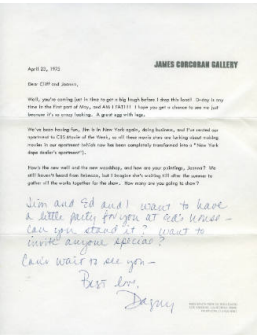 JAMES CORCORAN GALLERY
April 22, 1975
Dear Cliff and Joanna,
Well, you're coming just in time to get a big laugh before I drop this load! Ducky is any
time in the first part of May, and AM I FAT!!! I hope you get a chance to see me just
because it's so crazy looking. A great egg with legs.
We've been having fun, Jim is in New York again, doing business, and I've rented our
apartment to CBS Movie of the Week, so all these movie stars are lurking about making
movies in our apartment which now has been completely transformed into a "New York
dope dealer's apartment").
How's the new well and the new woodshop, and how are your paintings, Joanna? We
still haven't heard from but I imagine she's waiting till after the summer to
gather all the works together for the show. How many are you going to show?
Jim and Ed and I want to have
a little party for you at Ed's house -
can you stand it? Want to
invite anyone special?
Can't wait to see you -
Best love,
Dagny